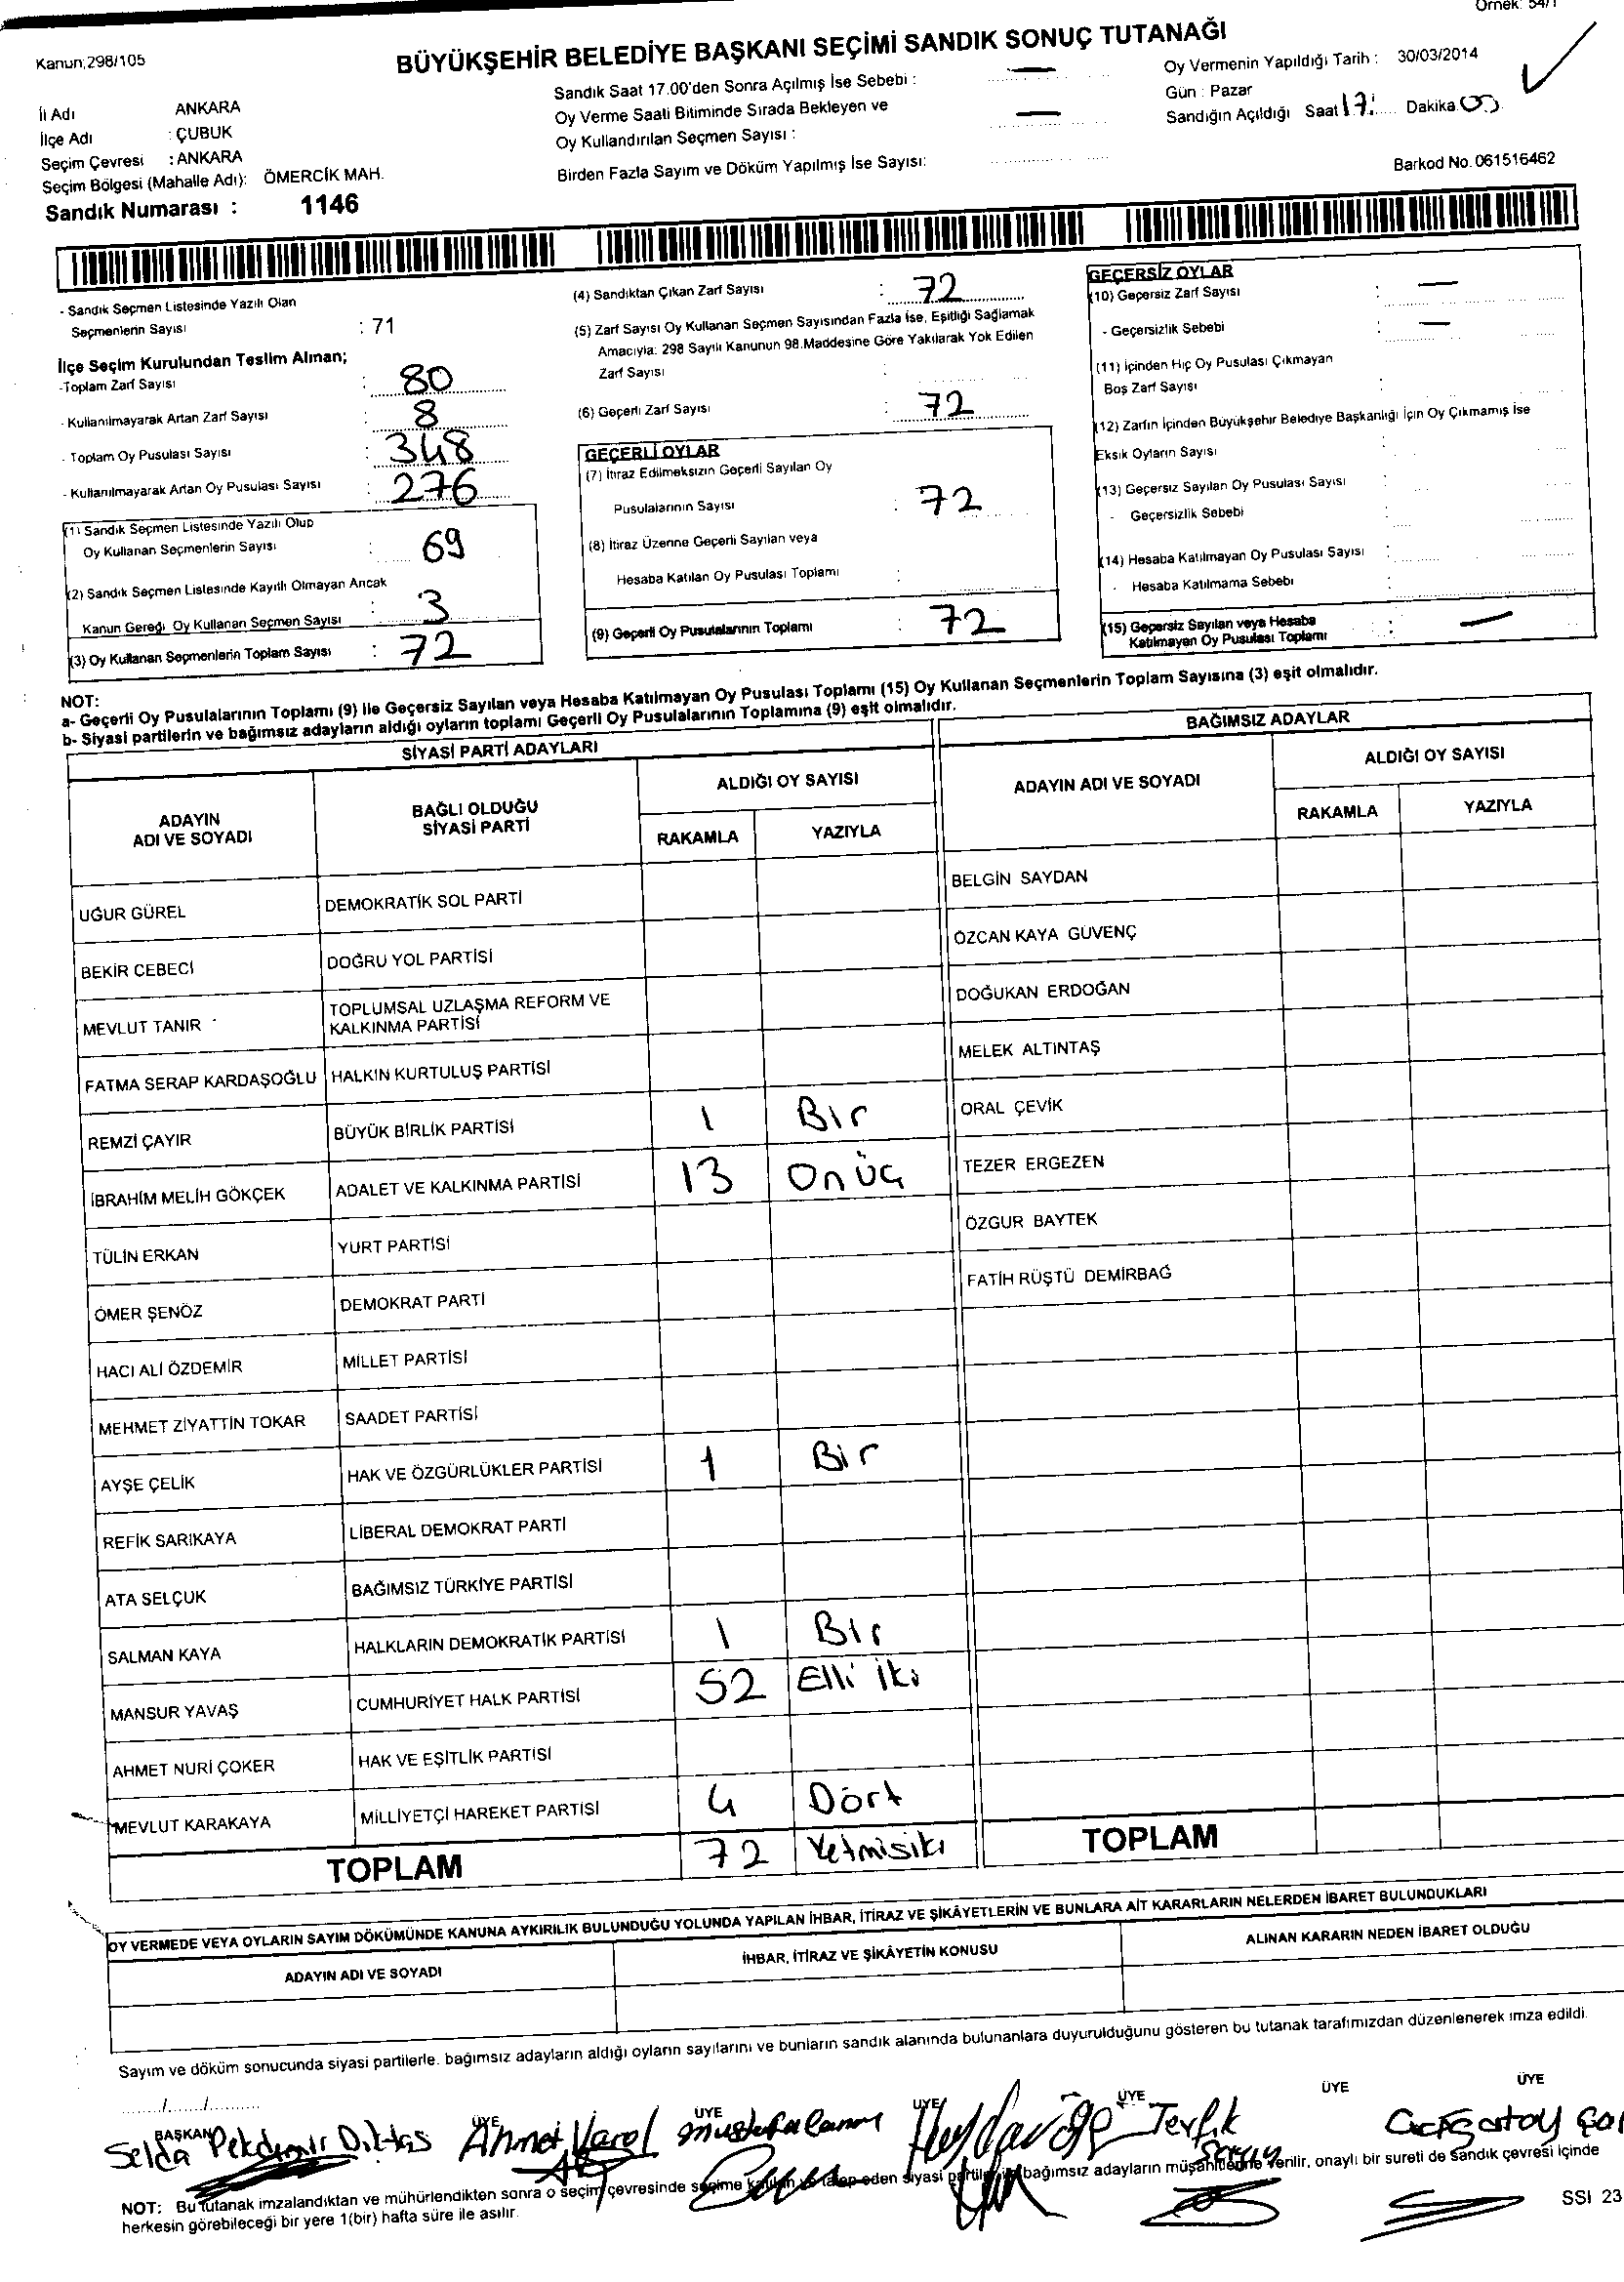 Örnek: 54/1
Kanun:298/105
BÜYÜKŞEHİR BELEDİYE BAŞKANI SEÇİMİ SANDIK SONUÇ TUTANAĞI
İl Adı ANKARA
İlçe Adı : ÇUBUK
Seçim Çevresi : ANKARA
Seçim Bölgesi (Mahalle Adı): ÖMERCİK MAH.
Sandık Numarası : 1146
Sandık Saat 17.00'den Sonra Açılmış İse Sebebi : —
Oy Verme Saati Bitiminde Sırada Bekleyen ve
Oy Kullandırılan Seçmen Sayısı : —
Birden Fazla Sayım ve Döküm Yapılmış İse Sayısı:
Oy Vermenin Yapıldığı Tarih : 30/03/2014
Gün : Pazar
Sandığın Açıldığı Saat 17: Dakika 00
Barkod No. 061516462
- Sandık Seçmen Listesinde Yazılı Olan
Seçmenlerin Sayısı : 71
İlçe Seçim Kurulundan Teslim Alınan;
-Toplam Zarf Sayısı : 80
- Kullanılmayarak Artan Zarf Sayısı : 8
- Toplam Oy Pusulası Sayısı : 348
- Kullanılmayarak Artan Oy Pusulası Sayısı : 276
(1) Sandık Seçmen Listesinde Yazılı Olup
Oy Kullanan Seçmenlerin Sayısı : 69
(2) Sandık Seçmen Listesinde Kayıtlı Olmayan Ancak
Kanun Gereği Oy Kullanan Seçmen Sayısı : 3
(3) Oy Kullanan Seçmenlerin Toplam Sayısı : 72
(4) Sandıktan Çıkan Zarf Sayısı : 72
(5) Zarf Sayısı Oy Kullanan Seçmen Sayısından Fazla İse, Eşitliği Sağlamak
Amacıyla: 298 Sayılı Kanunun 98.Maddesine Göre Yakılarak Yok Edilen
Zarf Sayısı :
(6) Geçerli Zarf Sayısı : 72
GEÇERLİ OYLAR
(7) İtiraz Edilmeksizin Geçerli Sayılan Oy
Pusulalarının Sayısı : 72
(8) İtiraz Üzerine Geçerli Sayılan veya
Hesaba Katılan Oy Pusulası Toplamı :
(9) Geçerli Oy Pusulalarının Toplamı : 72
GEÇERSİZ OYLAR
(10) Geçersiz Zarf Sayısı : —
- Geçersizlik Sebebi : —
(11) İçinden Hiç Oy Pusulası Çıkmayan
Boş Zarf Sayısı :
(12) Zarfın İçinden Büyükşehir Belediye Başkanlığı İçin Oy Çıkmamış İse
Eksik Oyların Sayısı :
(13) Geçersiz Sayılan Oy Pusulası Sayısı :
- Geçersizlik Sebebi :
(14) Hesaba Katılmayan Oy Pusulası Sayısı :
- Hesaba Katılmama Sebebi :
(15) Geçersiz Sayılan veya Hesaba
Katılmayan Oy Pusulası Toplamı : —
NOT:
a- Geçerli Oy Pusulalarının Toplamı (9) ile Geçersiz Sayılan veya Hesaba Katılmayan Oy Pusulası Toplamı (15) Oy Kullanan Seçmenlerin Toplam Sayısına (3) eşit olmalıdır.
b- Siyasi partilerin ve bağımsız adayların aldığı oyların toplamı Geçerli Oy Pusulalarının Toplamına (9) eşit olmalıdır.
SİYASİ PARTİ ADAYLARI
ADAYIN
ADI VE SOYADI
BAĞLI OLDUĞU
SİYASİ PARTİ
ALDIĞI OY SAYISI
RAKAMLA YAZIYLA
UĞUR GÜREL DEMOKRATİK SOL PARTİ
BEKİR CEBECİ DOĞRU YOL PARTİSİ
MEVLUT TANIR TOPLUMSAL UZLAŞMA REFORM VE
KALKINMA PARTİSİ
FATMA SERAP KARDAŞOĞLU HALKIN KURTULUŞ PARTİSİ
REMZİ ÇAYIR BÜYÜK BİRLİK PARTİSİ 1 Bir
İBRAHİM MELİH GÖKÇEK ADALET VE KALKINMA PARTİSİ 13 Onüç
TÜLİN ERKAN YURT PARTİSİ
ÖMER ŞENÖZ DEMOKRAT PARTİ
HACI ALİ ÖZDEMİR MİLLET PARTİSİ
MEHMET ZİYATTİN TOKAR SAADET PARTİSİ
AYŞE ÇELİK HAK VE ÖZGÜRLÜKLER PARTİSİ 1 Bir
REFİK SARIKAYA LİBERAL DEMOKRAT PARTİ
ATA SELÇUK BAĞIMSIZ TÜRKİYE PARTİSİ
SALMAN KAYA HALKLARIN DEMOKRATİK PARTİSİ 1 Bir
MANSUR YAVAŞ CUMHURİYET HALK PARTİSİ 52 Elli iki
AHMET NURİ ÇOKER HAK VE EŞİTLİK PARTİSİ
MEVLUT KARAKAYA MİLLİYETÇİ HAREKET PARTİSİ 4 Dört
TOPLAM 72 Yetmişiki
BAĞIMSIZ ADAYLAR
ADAYIN ADI VE SOYADI
ALDIĞI OY SAYISI
RAKAMLA YAZIYLA
BELGİN SAYDAN
ÖZCAN KAYA GÜVENÇ
DOĞUKAN ERDOĞAN
MELEK ALTINTAŞ
ORAL ÇEVİK
TEZER ERGEZEN
ÖZGUR BAYTEK
FATİH RÜŞTÜ DEMİRBAĞ
TOPLAM
OY VERMEDE VEYA OYLARIN SAYIM DÖKÜMÜNDE KANUNA AYKIRILIK BULUNDUĞU YOLUNDA YAPILAN İHBAR, İTİRAZ VE ŞİKÂYETLERİN VE BUNLARA AİT KARARLARIN NELERDEN İBARET BULUNDUKLARI
ADAYIN ADI VE SOYADI İHBAR, İTİRAZ VE ŞİKÂYETİN KONUSU ALINAN KARARIN NEDEN İBARET OLDUĞU
Sayım ve döküm sonucunda siyasi partilerle. bağımsız adayların aldığı oyların sayılarını ve bunların sandık alanında bulunanlara duyurulduğunu gösteren bu tutanak tarafımızdan düzenlenerek imza edildi.
......../......../............
BAŞKAN ÜYE ÜYE ÜYE ÜYE ÜYE ÜYE
Selda Pekdemir Ahmet Varol Tevfik
NOT: Bu tutanak imzalandıktan ve mühürlendikten sonra o seçim çevresinde seçime katılan ve talep eden siyasi partiler bağımsız adayların müşahitlerine verilir, onaylı bir sureti de sandık çevresi içinde
herkesin görebileceği bir yere 1(bir) hafta süre ile asılır.
SSI 23